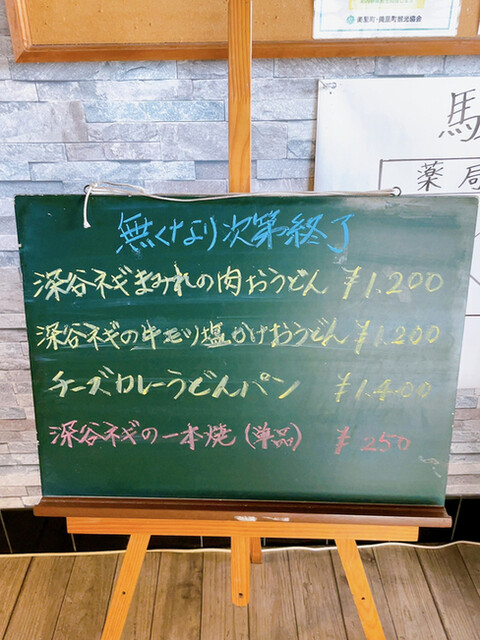 美里町・美里町観光協会
馬
薬局
無くなり次第終了
深谷ネギまみれの肉おうどん ¥1.200
深谷ネギの牛モツ塩かけおうどん ¥1.200
チーズカレーうどんパン ¥1.400
深谷ネギの一本焼(単品) ¥250